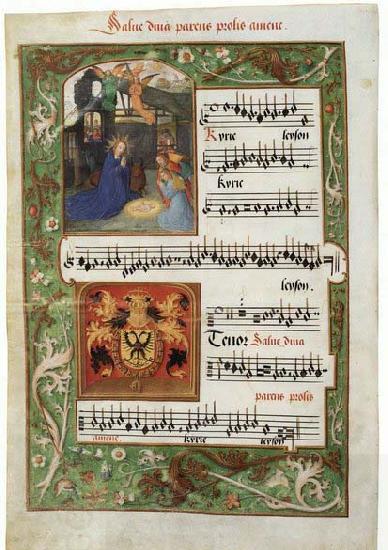 Salve diva parens prolis amene.
Kyrie leyson
Kyrie
leyson.
Tenor Salve diva
parens prolis
amene. Kyrie leyson